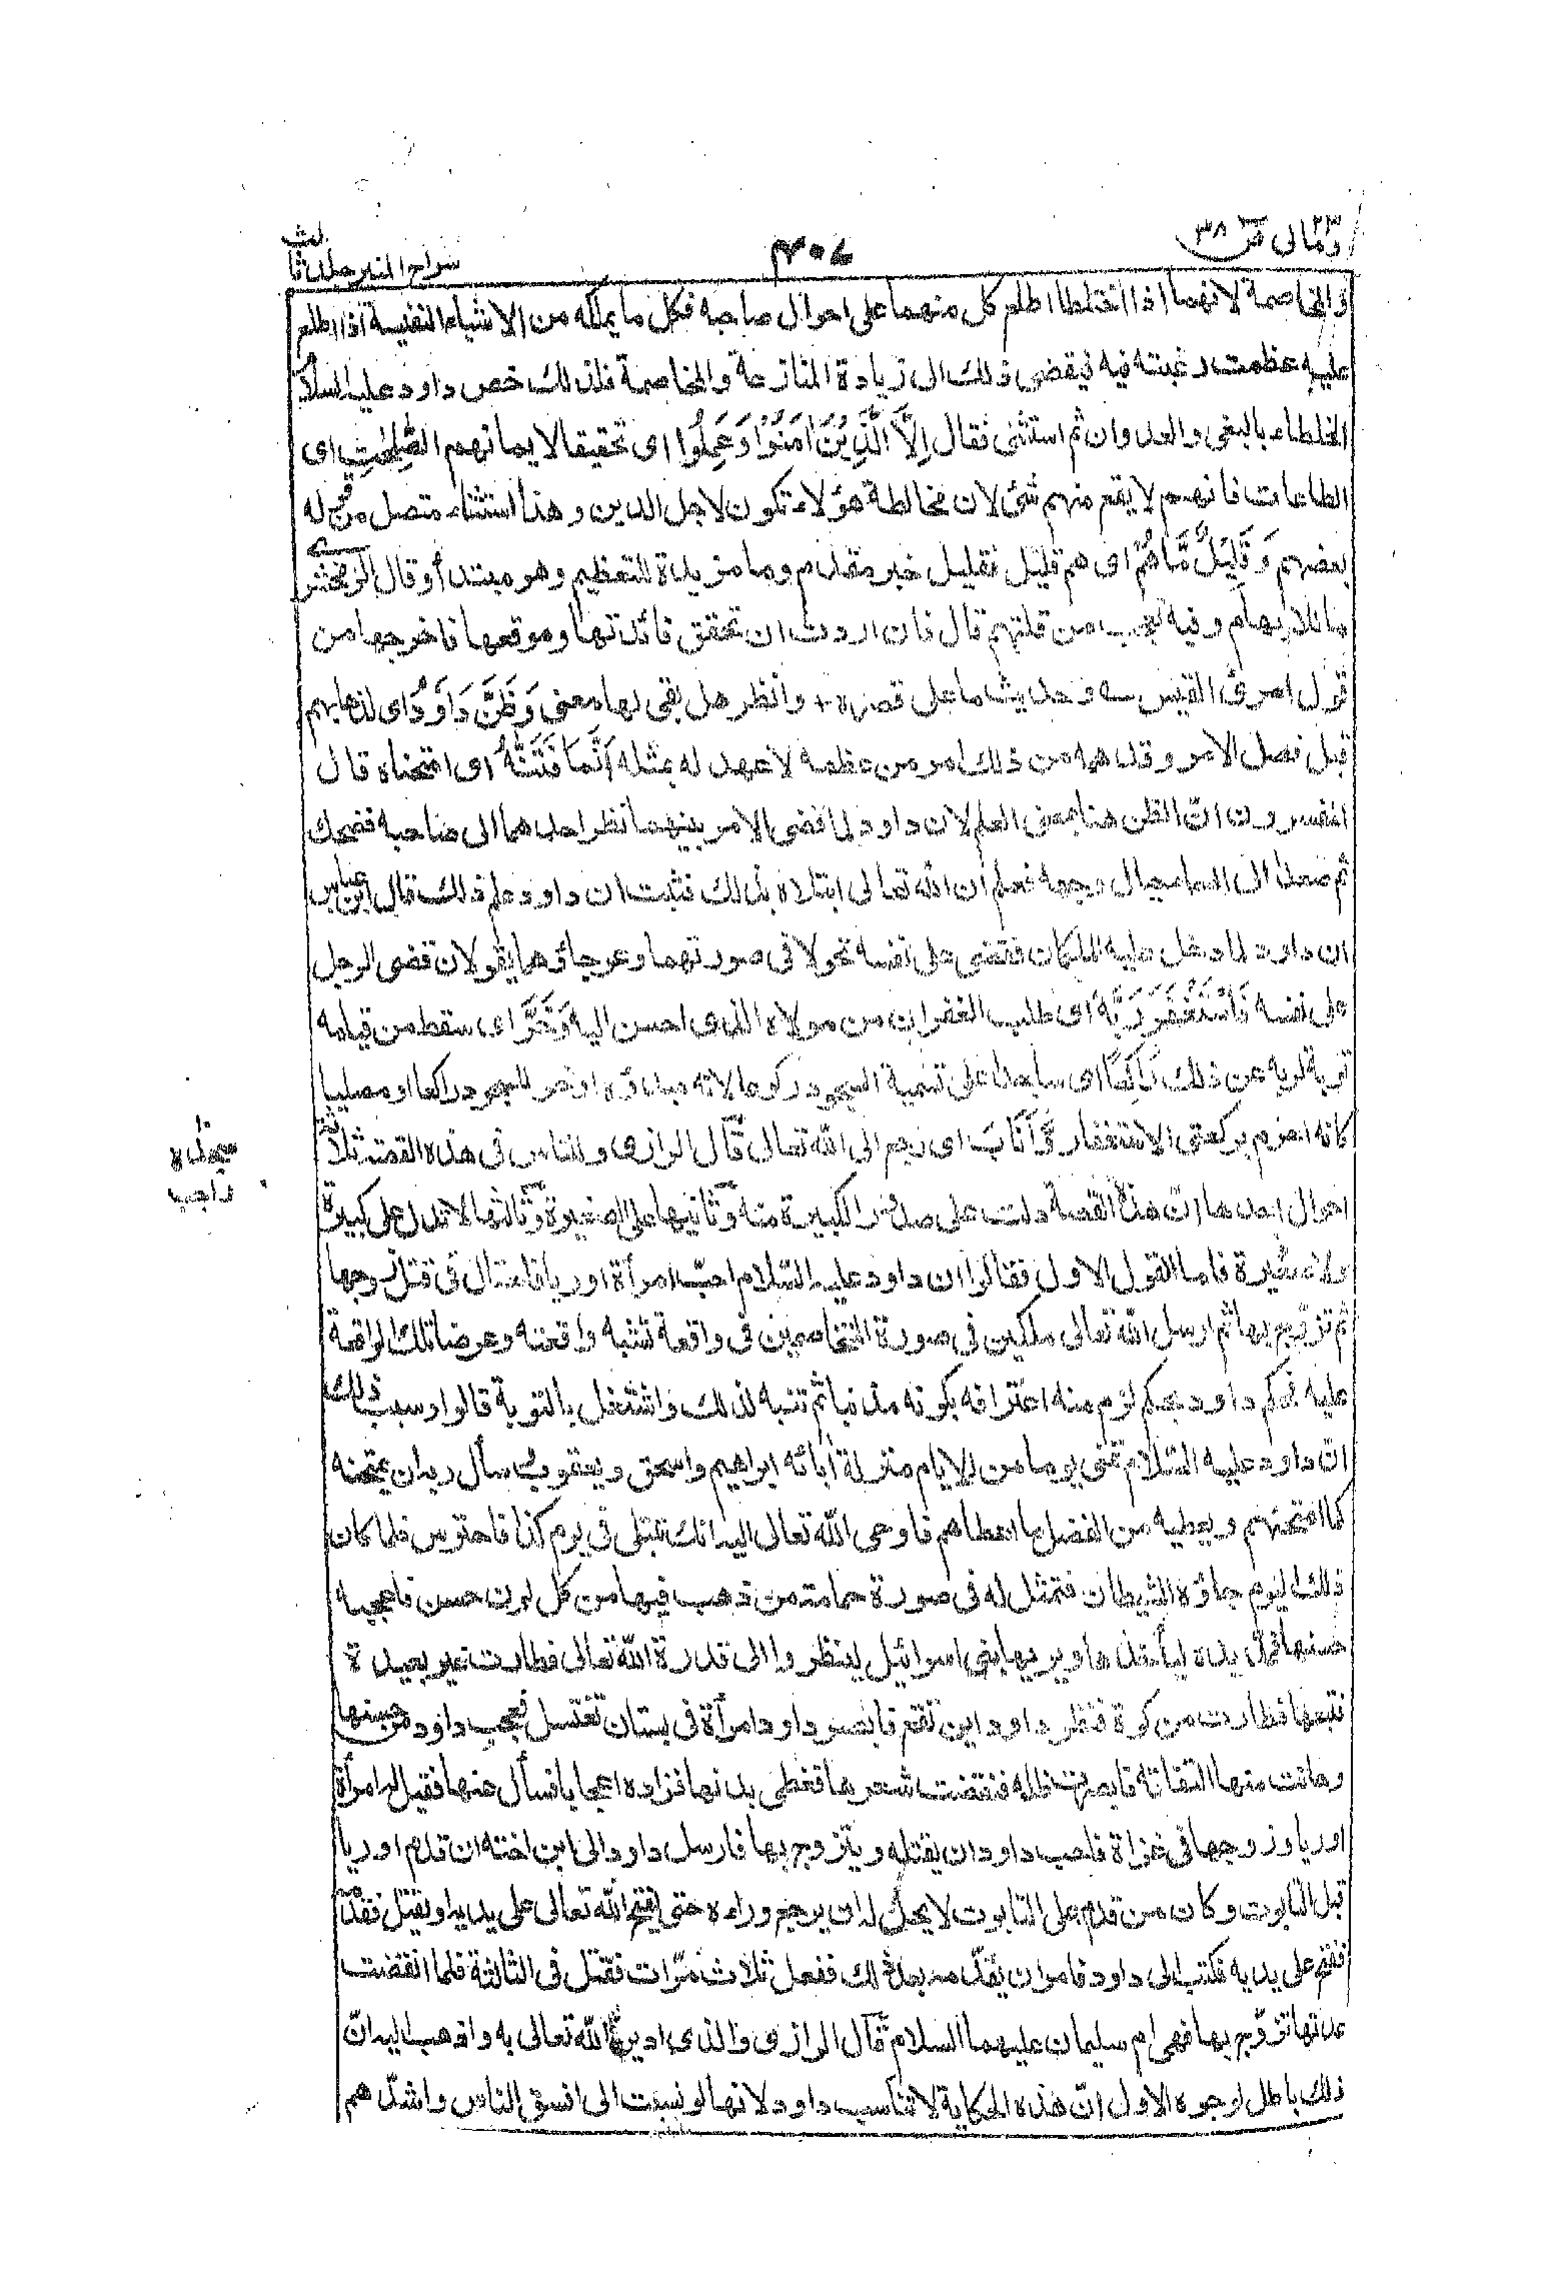 ومالى ٢٣ ص ٣٨
٤٠٧
سراج المنير جلد ثالث
والمخاصمة لانهما اذا اختلطا اطلع كل منهما على احوال صاحبه فكل ما يملكه من الاشياء النفيسة اذا اطلع
عليه عظمت رغبته فيه فيقضى ذلك الى زيادة المنازعة والمخاصمة فلذلك خص داود عليه السلام
الخلطاء بالبغى والعدوان ثم استثنى فقال اِلَّا الَّذِيْنَ اٰمَنُوْا وَعَمِلُوا اى تحقيقا لايمانهم الصّٰلِحٰتِ اى
الطاعات فانهم لا يقع منهم شئ لان مخالطة هؤلاء تكون لاجل الدين وهذا استثناء متصل من قوله
بعضهم وَقَلِيْلٌ مَّا هُمْ اى هم قليل فقليل خبر مقدم وما مزيدة للتعظيم وهو مبتدأ وقال الزمخشرى
ما للابهام وفيه تعجب من قلتهم قال فان اردت ان تحقق فائدتها وموقعها فاخرجها من
قول امرئ القيس ؎ وحديث ما على قصره + وانظر هل بقى لها معنى وَظَنَّ دَاوٗدُ اى لذهابهم
قبل فصل الامر وقد همه من ذلك امر من عظمه لا عهد له بمثله اَنَّمَا فَتَنّٰهُ اى امتحناه قال
المفسرون انّ الظن هنا بمعنى العلم لان داود لما قضى الامر بينهما نظر احدهما الى صاحبه فضحك
ثم صعدا الى السماء حيال وجهه فعلم ان الله تعالى ابتلاه بذلك فثبت ان داود علم ذلك قال ابن عباس
ان داود لما دخل عليه الملكان فقضى على نفسه تحولا فى صورتهما وعرجا وهما يقولان قضى الرجل
على نفسه فَاسْتَغْفَرَ رَبَّهٗ اى طلب الغفران من مولاه الذى احسن اليه وَخَرَّ اى سقط من قيامه
توبة لربه عن ذلك رَاكِعًا اى ساجدا على تسمية السجود ركوعا لانه مبدؤه او خر للسجود راكعا او مصليا
كانه احرم بركعتى الاستغفار وَّاَنَابَ اى رجع الى الله تعالى قال الرازى وللناس فى هذه القصة ثلاثة
احوال احدها انّ هذه القصة دلت على صدور الكبيرة منه وثانيها على الصغيرة وثالثها لا تدل على كبيرة
ولا صغيرة فاما القول الاول فقالوا ان داود عليه السّلام احبّ امرأة اوريا فاحتال فى قتل زوجها
ثم تزوّج بها ثم ارسل الله تعالى ملكين فى صورة المتخاصمين فى واقعة تشبه واقعته وعرضا تلك الواقعة
عليه فحكم داود بحكم لزم منه اعترافه بكونه مذنبا ثم تنبه لذلك واشتغل بالتوبة قالوا وسبب ذلك
انّ داود عليه السّلام تمنى يوما من الايام منزلة اٰبائه ابراهيم واسحق ويعقوب وسأل ربه ان يمتحنه
كما امتحنهم ويعطيه من الفضل ما اعطاهم فاوحى الله تعالى اليه انك تبتلى فى يوم كذا فاحترس فلما كان
ذلك اليوم جاؤه الشيطان فتمثل له فى صورة حمامة من ذهب فيها من كل لون حسن فاعجبه
حسنها فمدّ يده ليأخذها ويريها بنى اسرائيل لينظروا الى قدرة الله تعالى فطارت غير بعيدة
فتبعها فطارت من كوة فنظر داود اين تقع فابصر داود امرأة فى بستان تغتسل فعجب داود من حسنها
وحانت منها التفاتة فابصرت ظله فنقضت شعرها فغطى بدنها فزاده اعجابا فسأل عنها فقيل له امرأة
اوريا وزوجها فى غزاة فاحب داود ان يقتله ويتزوج بها فارسل داود الى ابن اخته ان قدم اوريا
قبل التابوت وكان من قدم على التابوت لا يحل له ان يرجع وراءه حتى يفتح الله تعالى على يديه او يقتل فقدّمه
ففتح على يديه فكتب الى داود فامر ان يقدّمه بعد ذلك ففعل ثلاث مرّات فقتل فى الثالثة فلما انقضت
عدتها تزوّج بها فهى ام سليمان عليهما السلام قال الرازى والذى ادين الله تعالى به واذهب اليه انّ
ذلك باطل لوجوه الاول انّ هذه الحكاية لا تناسب داود لانها لو نسبت الى افسق الناس واشدّهم
سجدة
واجب